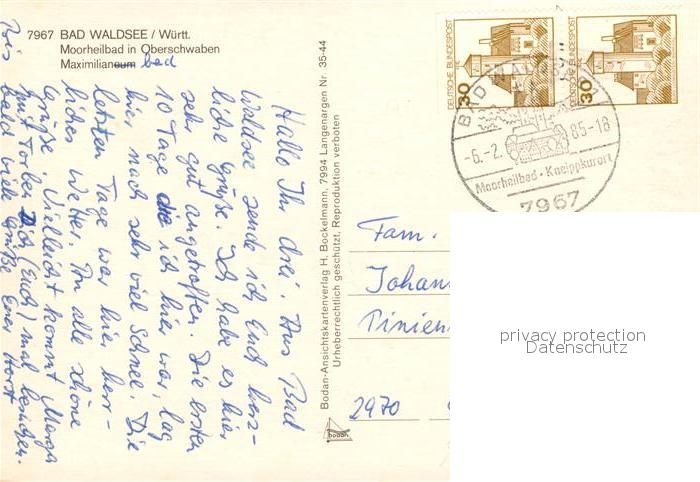 7967 BAD WALDSEE / Württ.
Moorheilbad in Oberschwaben
Maximilianeum bad
Hallo Ihr drei. Aus Bad
Waldsee sende ich Euch herz-
liche Grüße. Ich habe es hier
sehr gut angetroffen. Die ersten
10 Tage die ich hier war, lag
hier noch sehr viel Schnee. Die
letzten Tage war hier herr-
liches Wetter. Ihr alle schöne
Grüße. Vielleicht kommt Marga
mit Torben Dich (Euch) mal besuchen.
Bis bald viele Grüße Euer Horst
Bodan-Ansichtskartenverlag H. Bockelmann, 7994 Langenargen Nr. 35-44
Urheberrechtlich geschützt, Reproduktion verboten
bodan
DEUTSCHE BUNDESPOST
30
DEUTSCHE BUNDESPOST
30
BAD WALDSEE
-6.-2. 85-18
Moorheilbad · Kneippkurort
7967
Fam.
Johan
Pinien
2970
privacy protection
Datenschutz